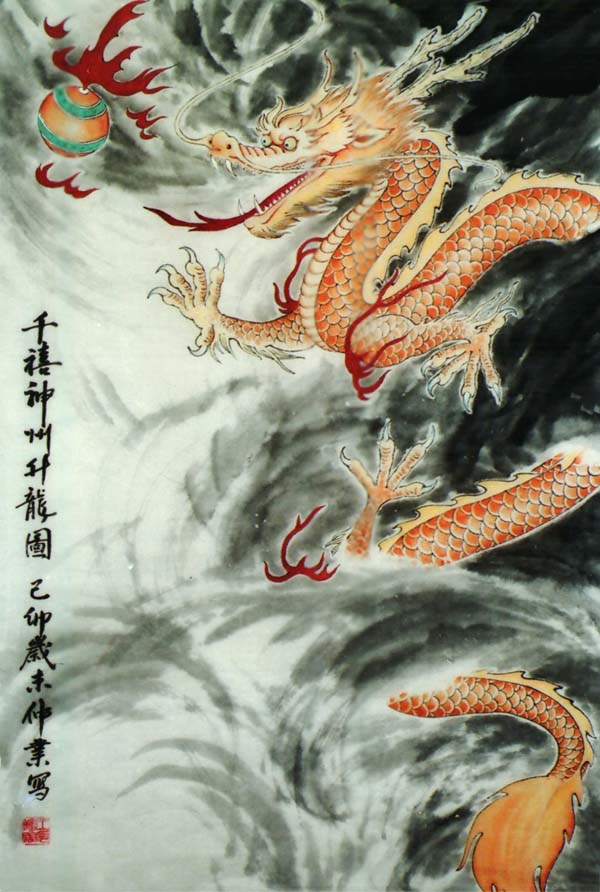 千禧神州升龍圖 己卯歲末仲業寫